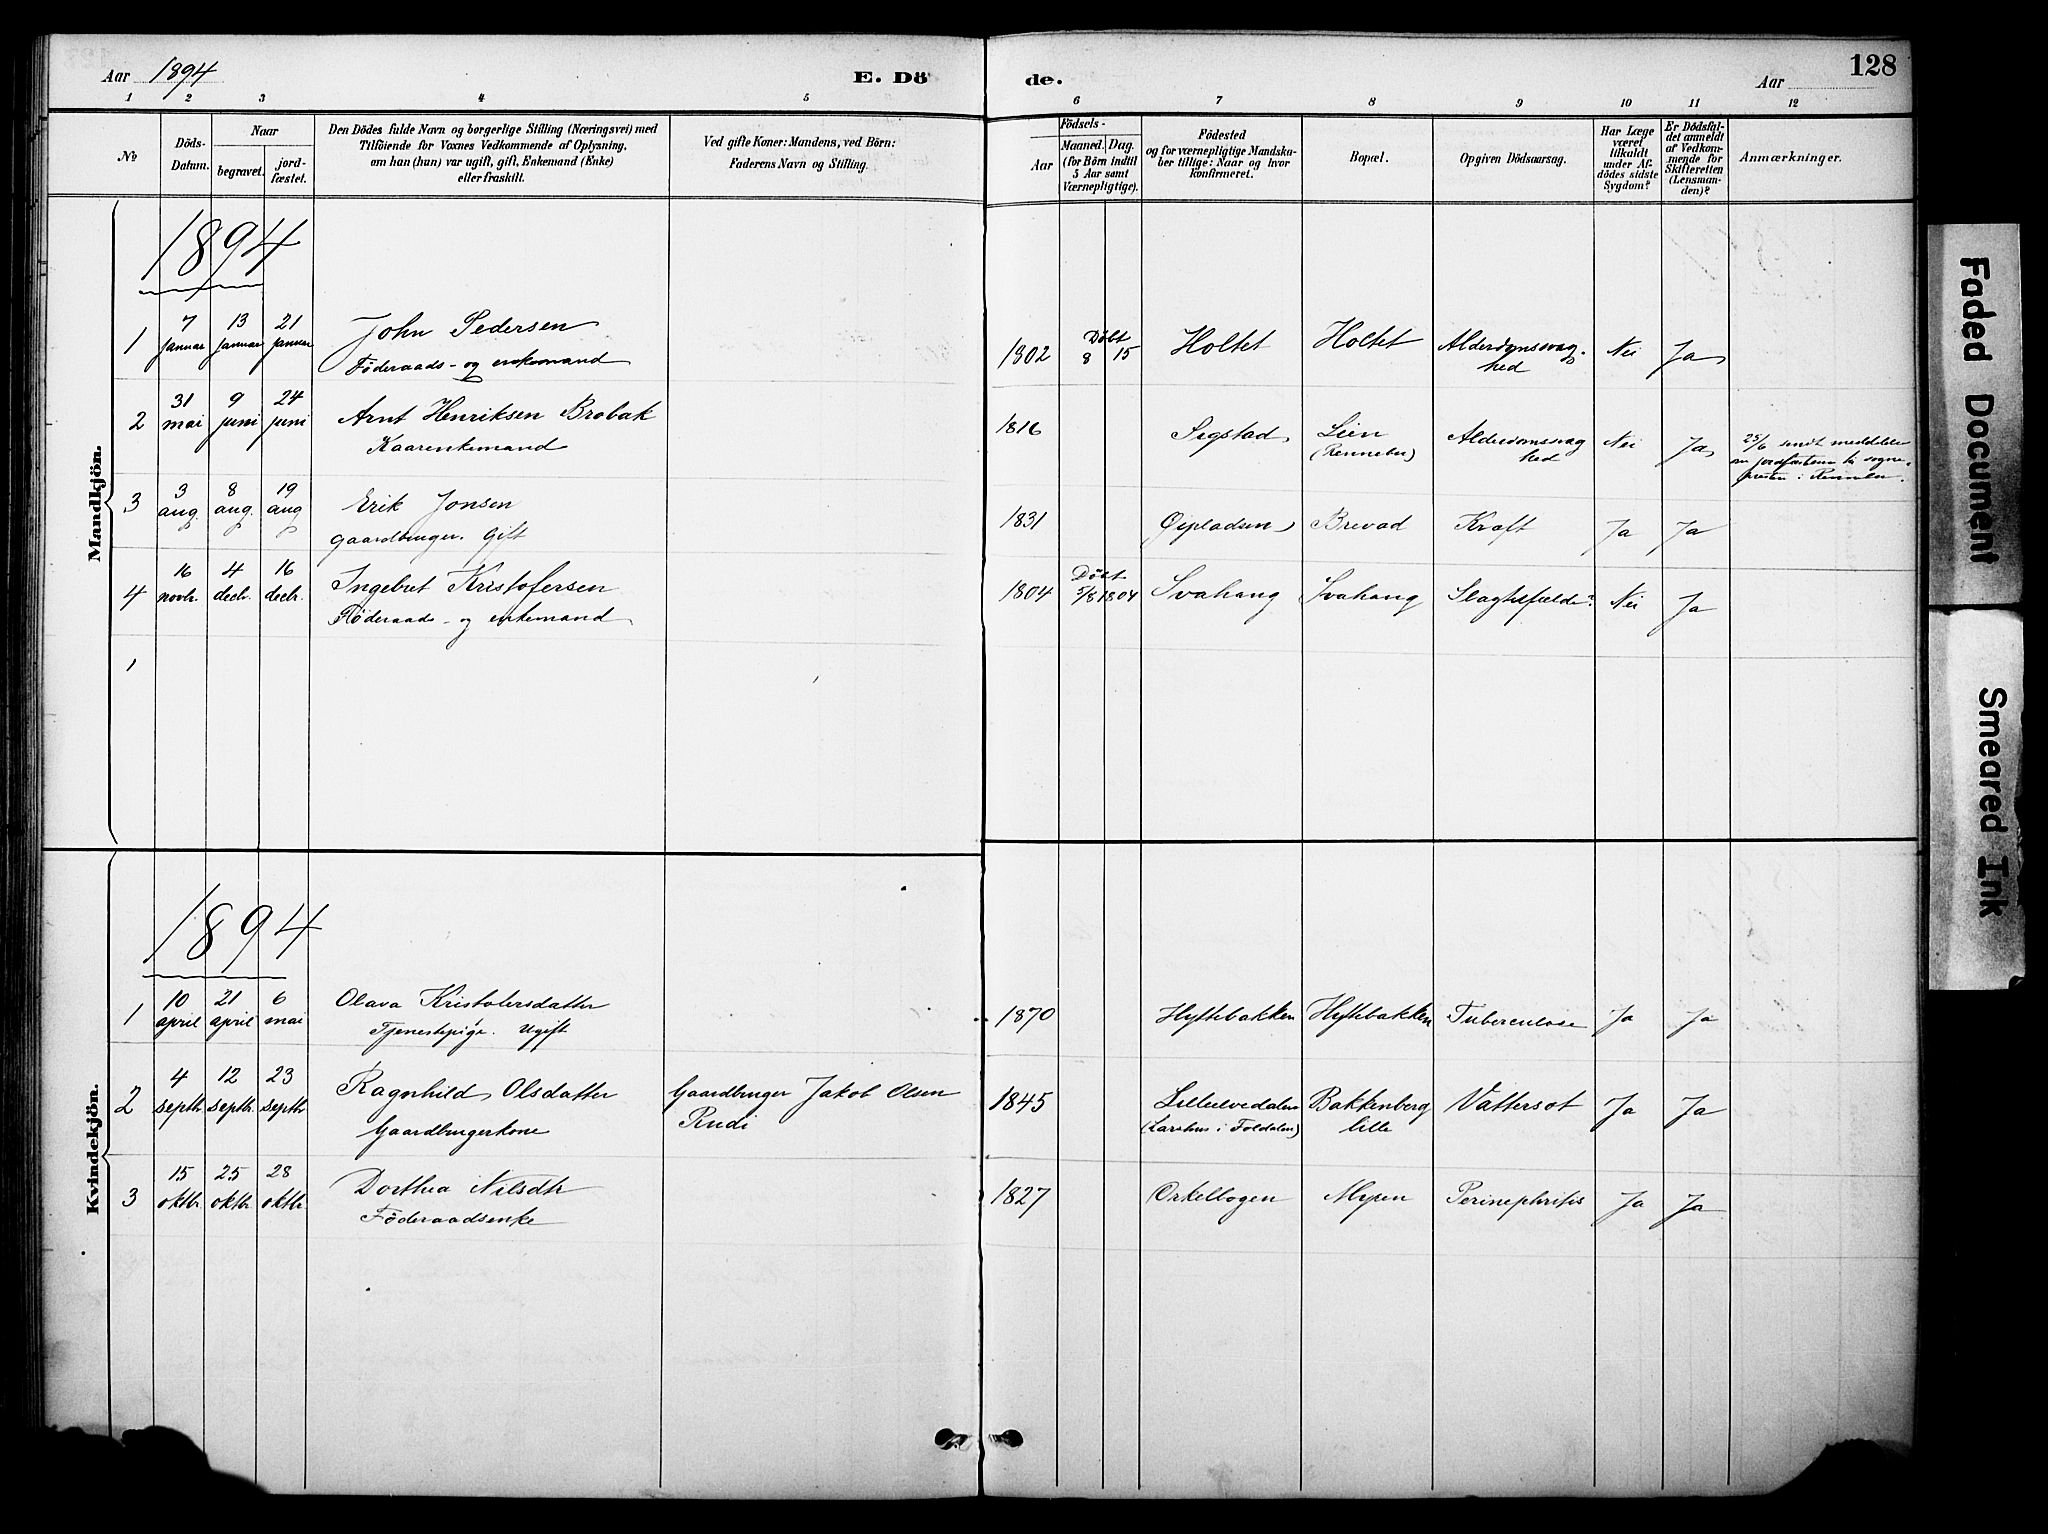 Aar 1894
E. Dö
de.
Aar
128
1 2 3 4 5 6 7 8 9 10 11 12
№
Döds-Datum.
Naar
begravet.
jord-fæstet.
Den Dödes fulde Navn og borgerlige Stilling (Næringsvei) med
Tilföiende for Voxnes Vedkommende af Oplysning,
om han (hun) var ugift, gift, Enkemand (Enke)
eller fraskilt.
Ved gifte Koner: Mandens, ved Börn:
Faderens Navn og Stilling.
Födsels-
Aar
Maaned. Dag.
(for Börn indtil
5 Aar samt
Værnepligtige).
Födested
og for værnepligtige Mandska-
ber tillige: Naar og hvor
konfirmeret.
Bopæl.
Opgiven Dödsaarsag.
Har Læge
været
tilkaldt
under Af-
dödes sidste
Sygdom?
Er Dödsfal-
det anmeldt
af Vedkom-
mende for
Skifteretten
(Lensman-
den)?
Anmærkninger.
Mandkjön.
1894
1 7 januar 13 januar 21 januar John Pedersen 1802 Döbt 8 15 Holtet Holtet Alderdomssvag- Nei Ja
Föderaads- og enkemand hed
2 31 mai 9 juni 24 juni Arnt Henriksen Brobak 1816 Segstad Lien Alderdomssvag Nei Ja 25/6 sendt meddelelse
Kaarenkemand (Rennebu) hed om jordfæstelsen til sogne-
presten i Rennebu.
3 3 aug. 8 aug. 19 aug Erik Jonsen 1831 Brevad Kræft Ja Ja
gaardbruger. Gift
4 16 novbr. 4 decbr. 16 decbr. Ingebret Kristofersen 1804 Döbt 5/8 1804 Svahaug Svahaug Slagtilfælde? Nei Ja
Föderaads- og enkemand
1
Kvindekjön.
1894
1 10 april 21 april 6 mai Olava Kristofersdatter 1870 Hyttebakken Hyttebakken Tuberculose Ja Ja
Tjenestepige. Ugift
2 4 septbr. 12 septbr. 23 septbr Ragnhild Olsdatter Gaardbruger Jakob Olsen 1845 Lilleelvedalen Bakkenberg Vattersot Ja Ja
Gaardbrugerkone Rudi (Larshus i Foldalen) lille
3 15 oktbr. 25 oktbr. 28 oktbr. Dorthea Nilsdtr 1827 Orkelbogen Mypen Perinephritis Ja Ja
Föderaadsenke
Faded Document
Smeared Ink